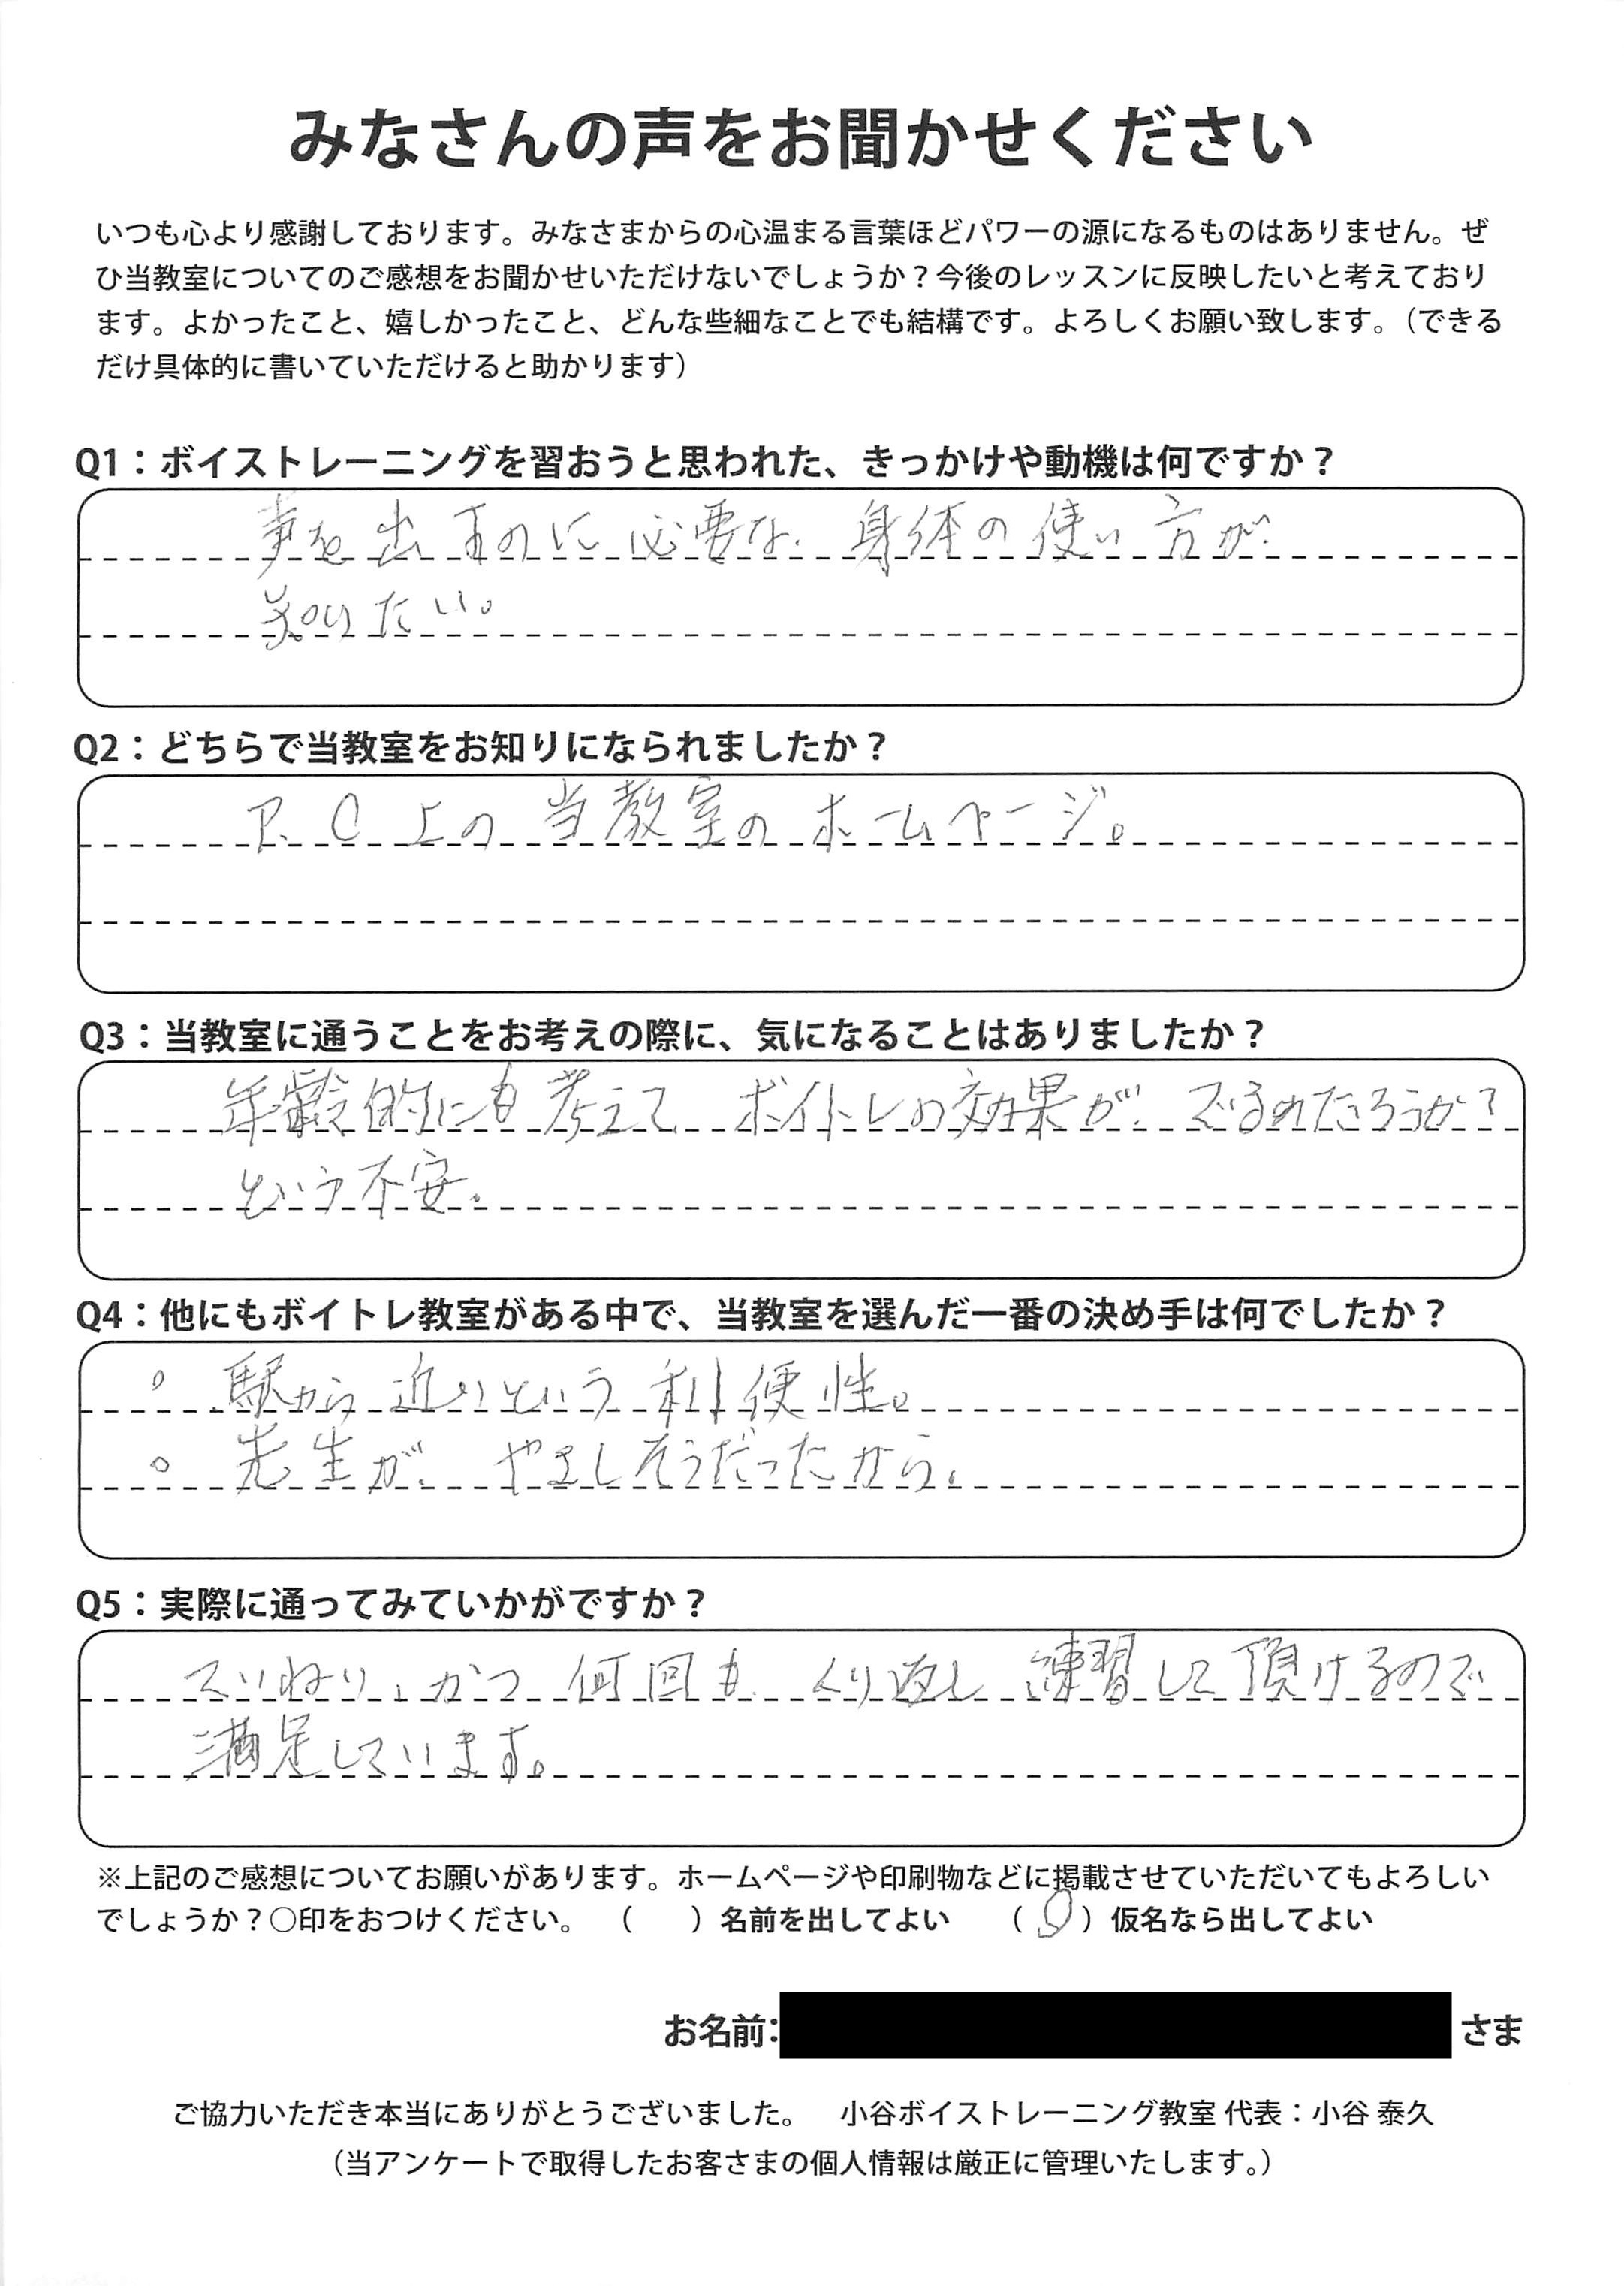 みなさんの声をお聞かせください
いつも心より感謝しております。みなさまからの心温まる言葉ほどパワーの源になるものはありません。ぜ
ひ当教室についてのご感想をお聞かせいただけないでしょうか？今後のレッスンに反映したいと考えており
ます。よかったこと、嬉しかったこと、どんな些細なことでも結構です。よろしくお願い致します。（できる
だけ具体的に書いていただけると助かります）
Q1：ボイストレーニングを習おうと思われた、きっかけや動機は何ですか？
声を出すのに必要な身体の使い方が
知りたい。
Q2：どちらで当教室をお知りになられましたか？
P.C上の当教室のホームページ。
Q3：当教室に通うことをお考えの際に、気になることはありましたか？
年齢的にも考えてボイトレの効果がでるのだろうか？
という不安。
Q4：他にもボイトレ教室がある中で、当教室を選んだ一番の決め手は何でしたか？
○ 駅から近いという利便性。
○ 先生が、やさしそうだったから。
Q5：実際に通ってみていかがですか？
ていねい、かつ何回もくり返し練習して頂けるので
満足しています。
※上記のご感想についてお願いがあります。ホームページや印刷物などに掲載させていただいてもよろしい
でしょうか？○印をおつけください。 （　　）名前を出してよい （○）仮名なら出してよい
お名前： さま
ご協力いただき本当にありがとうございました。 小谷ボイストレーニング教室 代表：小谷 泰久
（当アンケートで取得したお客さまの個人情報は厳正に管理いたします。）